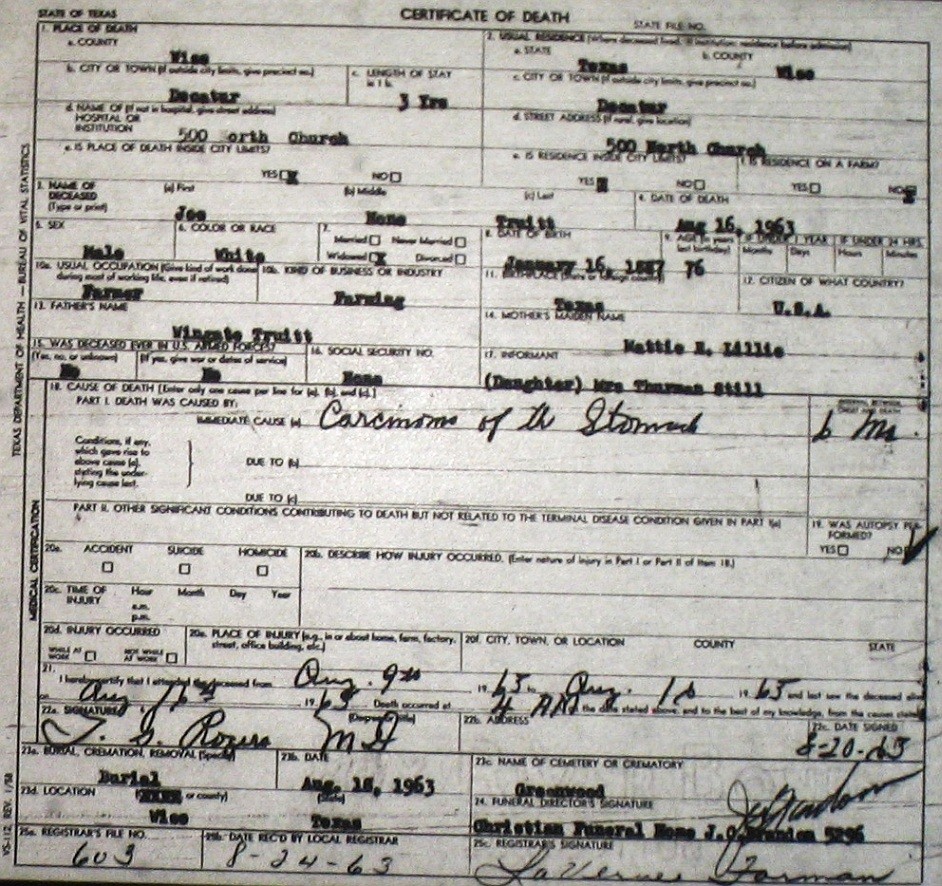 STATE OF TEXAS
CERTIFICATE OF DEATH
STATE FILE NO.
1. PLACE OF DEATH
a. COUNTY
Wise
2. USUAL RESIDENCE (Where deceased lived. If institution: residence before admission)
a. STATE
Texas
b. COUNTY
Wise
b. CITY OR TOWN (If outside city limits, give precinct no.)
Decatur
c. LENGTH OF STAY
in 1 b.
3 Yrs
c. CITY OR TOWN (If outside city limits, give precinct no.)
Decatur
d. NAME OF (If not in hospital, give street address)
HOSPITAL OR
INSTITUTION
500 orth Church
d. STREET ADDRESS (If rural, give location)
500 North Church
e. IS PLACE OF DEATH INSIDE CITY LIMITS?
YES X NO
e. IS RESIDENCE INSIDE CITY LIMITS?
YES X NO
f. IS RESIDENCE ON A FARM?
YES NO X
3. NAME OF
DECEASED
(Type or print)
(a) First
Joe
(b) Middle
None
(c) Last
Truitt
4. DATE OF DEATH
Aug 16, 1963
5. SEX
Male
6. COLOR OR RACE
White
7.
Married Never Married
Widowed X Divorced
8. DATE OF BIRTH
January 16, 1887
9. AGE (In years
last birthday)
76
IF UNDER 1 YEAR
Months Days
IF UNDER 24 HRS.
Hours Minutes
10a. USUAL OCCUPATION (Give kind of work done
during most of working life, even if retired)
Farmer
10b. KIND OF BUSINESS OR INDUSTRY
Farming
11. BIRTHPLACE (State or foreign country)
Texas
12. CITIZEN OF WHAT COUNTRY?
U.S.A.
13. FATHER'S NAME
Wingate Truitt
14. MOTHER'S MAIDEN NAME
Mattie E. Lillie
15. WAS DECEASED EVER IN U.S. ARMED FORCES?
(Yes, no, or unknown)
No
(If yes, give war or dates of service)
No
16. SOCIAL SECURITY NO.
None
17. INFORMANT
(Daughter) Mrs Thurman Still
18. CAUSE OF DEATH [Enter only one cause per line for (a), (b), and (c).]
PART I. DEATH WAS CAUSED BY:
IMMEDIATE CAUSE (a)
Carcinoma of the Stomach
INTERVAL BETWEEN
ONSET AND DEATH
6 Mo.
Conditions, if any,
which gave rise to
above cause (a),
stating the under-
lying cause last.
DUE TO (b)
DUE TO (c)
PART II. OTHER SIGNIFICANT CONDITIONS CONTRIBUTING TO DEATH BUT NOT RELATED TO THE TERMINAL DISEASE CONDITION GIVEN IN PART I(a)
19. WAS AUTOPSY PER-
FORMED?
YES NO
20a. ACCIDENT SUICIDE HOMICIDE
20b. DESCRIBE HOW INJURY OCCURRED. (Enter nature of injury in Part I or Part II of Item 18.)
20c. TIME OF
INJURY
Hour Month Day Year
a.m.
p.m.
20d. INJURY OCCURRED
WHILE AT
WORK
NOT WHILE
AT WORK
20e. PLACE OF INJURY (e.g., in or about home, farm, factory,
street, office building, etc.)
20f. CITY, TOWN, OR LOCATION COUNTY STATE
21.
I hereby certify that I attended the deceased from Aug. 9th 1963 to Aug. 16 1963 and last saw the deceased alive
on Aug 16th 1963 Death occurred at 4 AM the date stated above, and to the best of my knowledge, from the causes stated
22a. SIGNATURE
T. G. Rogers
(Degree or title)
MD
22b. ADDRESS
22c. DATE SIGNED
8-20-63
23a. BURIAL, CREMATION, REMOVAL (Specify)
Burial
23b. DATE
Aug. 18, 1963
23c. NAME OF CEMETERY OR CREMATORY
Greenwood
23d. LOCATION
or county)
Wise
(State)
Texas
24. FUNERAL DIRECTOR'S SIGNATURE
Christian Funeral Home J.O. Brandon 5296
25a. REGISTRAR'S FILE NO.
603
25b. DATE REC'D BY LOCAL REGISTRAR
8-24-63
25c. REGISTRAR'S SIGNATURE
LaVerne Forman
TEXAS DEPARTMENT OF HEALTH — BUREAU OF VITAL STATISTICS
MEDICAL CERTIFICATION
VS-112, REV. 1/58